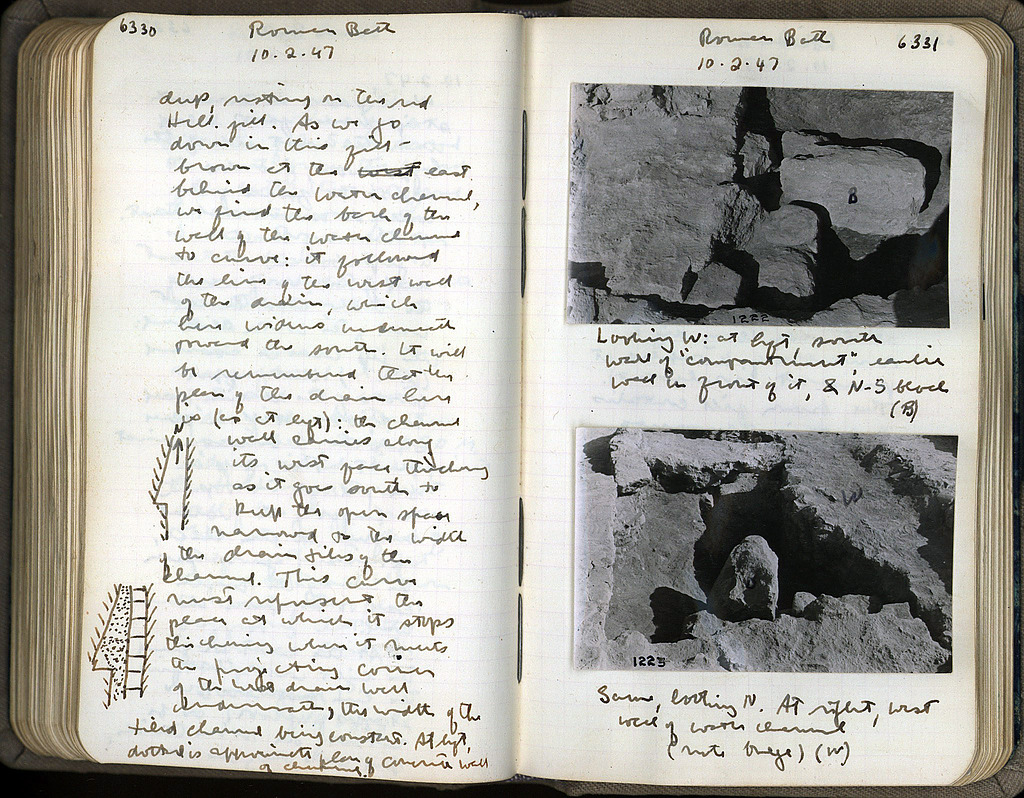 6330
Roman Bath
10.2.47
deep, resting on the red
Hell. fill. As we go
down in this fill -
brown at the west east
behind the water channel,
we find the back of the
wall of the water channel
to curve: it followed
the line of the west wall
of the drain, which
here widens underneath
toward the south. It will
be remembered that the
plan of the drain here
is (as at left): the channel
wall carries along
its west face thickening
as it goes south to
keep the open space
narrowed to the width
of the drain tiles of the
channel. This curve
must represent the
place at which it stops
thickening when it meets
the projecting corner
of the west drain wall
underneath, the width of the
tiled channel being constant. At left,
dotted is approximate plan of concrete wall
of channel.
Roman Bath
6331
10.2.47
B
1222
Looking W: at left, south
wall of "compartment", earlier
wall in front of it, & N-S block
(B)
W
1223
Same, looking N. At right, west
wall of water channel
(note bulge) (W)